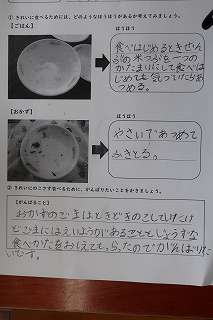 ① きれいに食べるためには、どのようなほうほうがあるか考えてみましょう。
【ごはん】
ほうほう
食べはじめるときぜん
ぶの米つぶを一つの
かたまりにして食べは
じめても気づいたらあ
つめる。
【おかず】
ほうほう
やさいであつめて
ふきとる。
② きれいにのこさず食べるために、がんばりたいことをかきましょう。
【がんばること】
おかずのごまはときどきのこしてたけれ
どごまにはえいようがあることとじょうずな
食べかたをおしえてもらったのでがんばりた
いです。